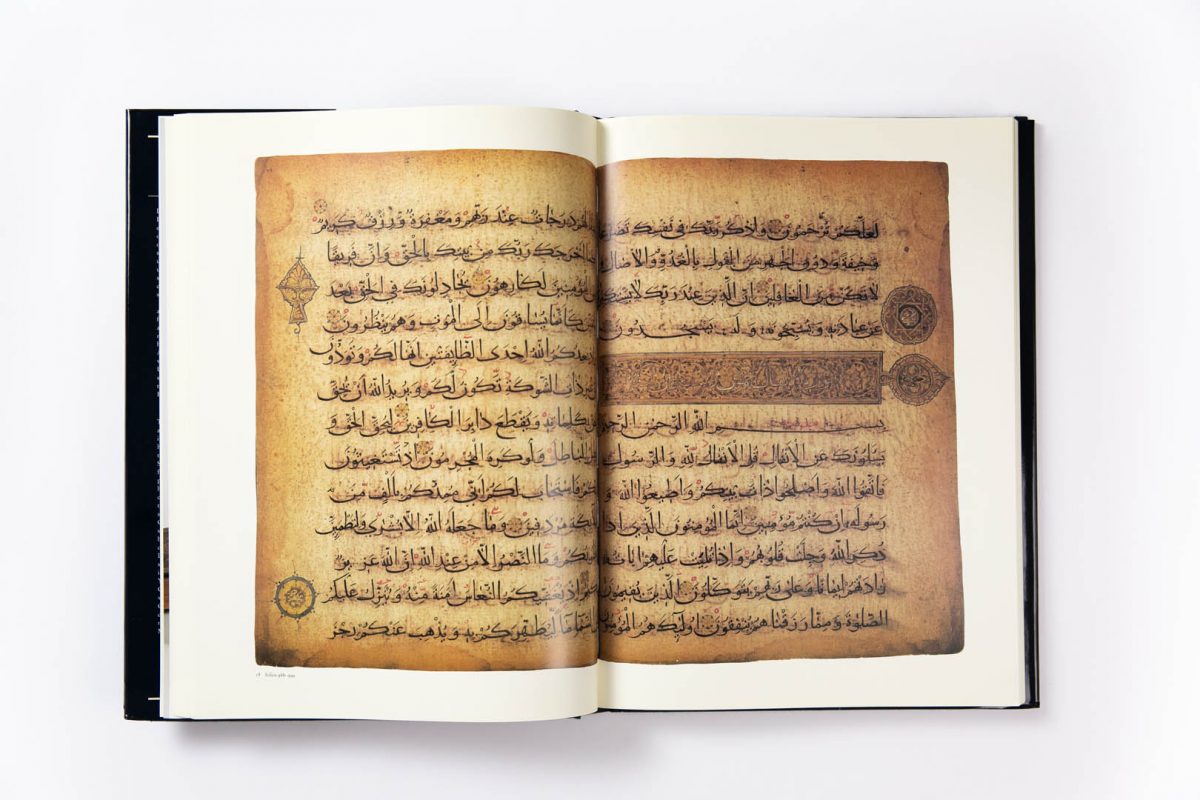 لعلكم ترحمون واذكر ربك في نفسك
وخيفة ودون الجهر من القول بالغدو والآصال
لا تكن من الغافلين ان الذين عند ربك لا
عن عبادته ويسبحونه وله يسجدون
بسم الله الرحمن الرحيم
يسئلونك عن الانفال قل الانفال لله والرسول
فاتقوا الله واصلحوا ذات بينكم واطيعوا الله
رسوله ان كنتم مؤمنين انما المؤمنون الذين اذا
ذكر الله وجلت قلوبهم واذا تليت عليهم اياته
زادتهم ايمانا وعلى ربهم يتوكلون الذين يقيمون
الصلوة ومما رزقناهم ينفقون اولئك هم
لهم درجات عند ربهم ومغفرة ورزق كريم
اخرجك ربك من بيتك بالحق وان فريقا
المؤمنين لكارهون يجادلونك في الحق بعد
كانما يساقون الى الموت وهم ينظرون
يعدكم الله احدى الطائفتين انها لكم وتودون
ذات الشوكة تكون لكم ويريد الله ان يحق
بكلماته ويقطع دابر الكافرين ليحق الحق و
الباطل ولو كره المجرمون اذ تستغيثون
فاستجاب لكم اني ممدكم بالف من
مردفين وما جعله الله الا بشرى ولتطمئن
وما النصر الا من عند الله ان الله عزيز
اذ يغشيكم النعاس امنة منه وينزل عليكم
ماء ليطهركم به ويذهب عنكم رجز